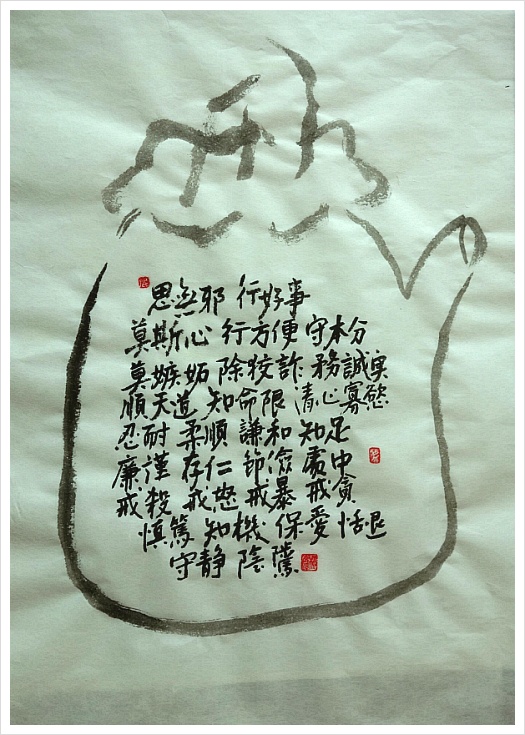 思無邪 行好事
莫欺心 行方便 守本分
莫嫉妬 除狡詐 務誠実
順天道 知命限 清心寡慾
忍耐柔順 謙和知足
廉謹存仁 節儉處中
戒殺戒怒戒暴戒貪
慎篤知機保愛恬退
守静 陰騭